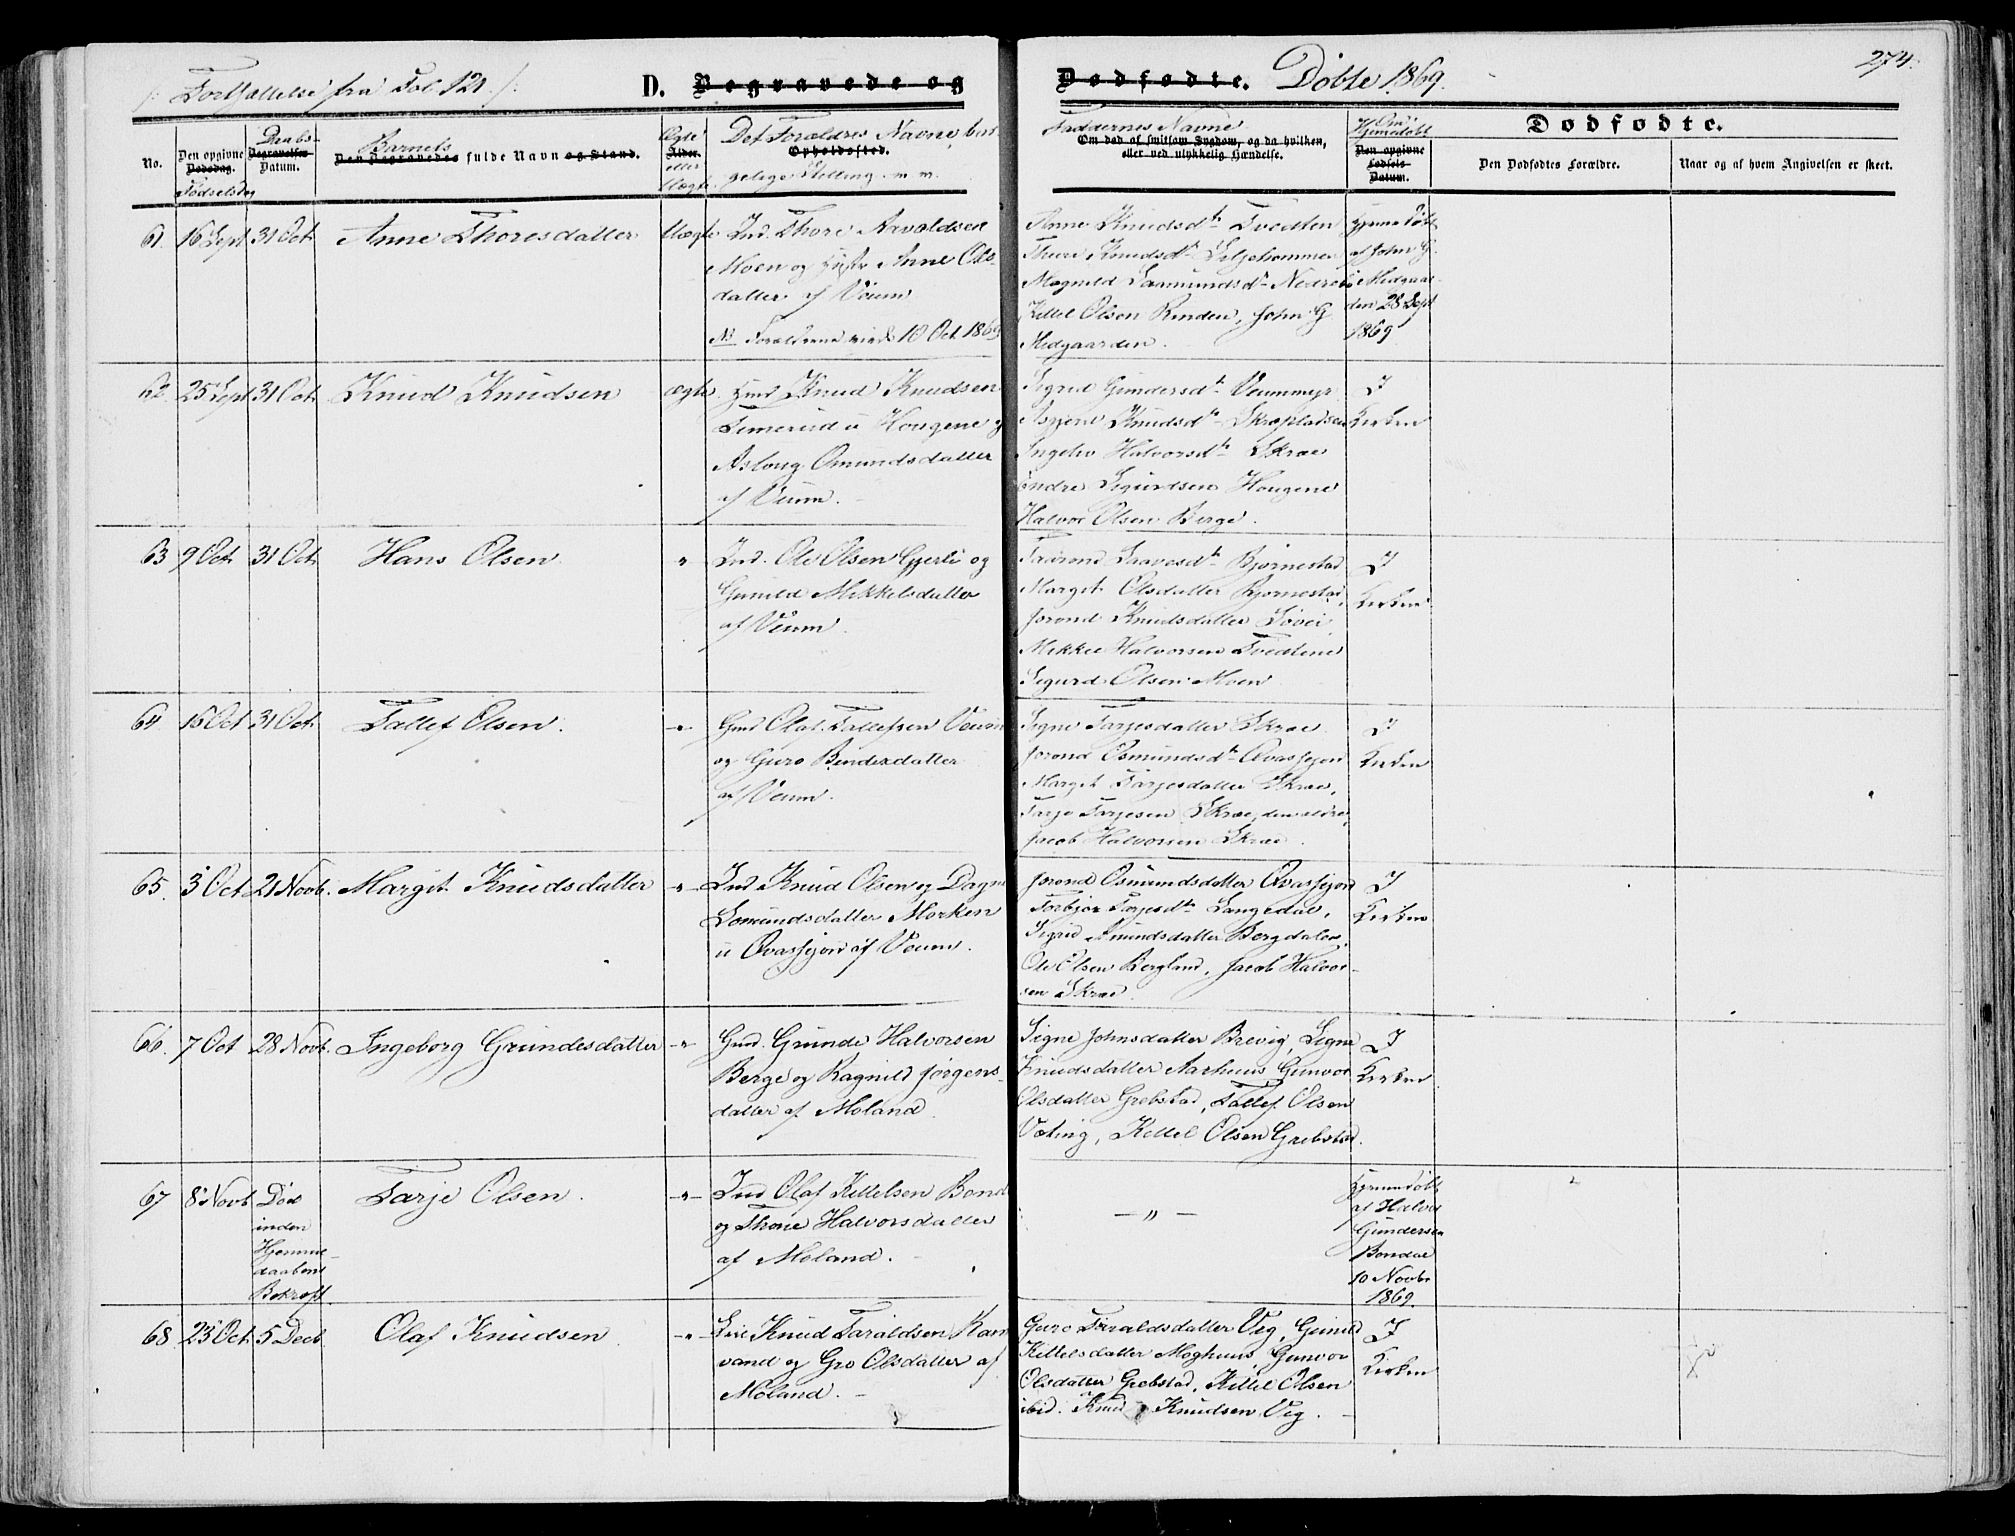 /: Fortsættelse fra Fol 121 :/
D. Begravede og
Dødfødte. Døbte 1869.
274.
No.
Den opgivne
Dødsdag.
Fødselsdag
Daabs-
Begravelses-
Datum.
Barnets
Den Begravedes fulde Navn og Stand.
Ægte
Alder.
eller
Uægte.
Det Forældres Navne, bor-
Opholdssted.
gelige Stilling m. m.
Faddernes Navne
Om død af smitsom Sygdom, og da hvilken,
eller ved ulykkelig Hændelse.
Om
Hjemmedøbt
Den opgivne
Fødsels-
Datum.
Dødfødte.
Den Dødfødtes Forældre.
Naar og af hvem Angivelsen er skeet.
61. 16 Sept 31 Oct Anne Thoresdatter Uægte Ind. Thore Aavaldsen
Moen og Anne Ols-
datter af Veum
NB Forældrene viede 10 Oct 1869
Anne Knudsdt Tvedten
Thuri Knudsdt Liljehommen
Magnild Saamundsdt Nedrebø
Kittel Olsen Renden, John G
Midgaarden.
Hjemmedøbt
af John G.
Midgaar-
den 28 Sept
1869
62. 25 Sept 31 Oct Knud Knudsen ægte. Knud Knudsen
Timerud u Hougene og
Asloug Omundsdatter
af Veum.
Sigrid Gundersdt Veummyr
Asgjerd Knudsdt Skræpladsen
Ingebor Halvorsdt Skræe
Øndre Sigurdsen Hougene
Halvor Olsen Berge.
I
Kirken
63 9 Oct 31 Oct Hans Olsen " Ind. Ole Olsen Gjerli og
Gunild Mikkelsdatter
af Veum.
Taarond Saavesdt Bjørnestad
Margit Olsdatter Bjørnestad,
Jorond Knudsdatter Søvei,
Mikkel Halvorsen Tvedtene
Sigurd Olsen Moen
I
Kirken
64 15 Oct 31 Oct Tallef Olsen. -"- Gmd Olaf Tallefsen Veum
og Guro Bendixdatter
af Veum.
Signe Tarjesdatter Skræe.
Jorond Osmundsdt Qvasfjord
Margit Tarjesdatter Skræe,
Tarje Tarjesen Skræe, den ældre,
Jacob Halvorsen Skræe.
I
Kirken
65. 3 Oct 21 Novb. Margit Knudsdatter -"- Ind Knud Olsen og Dagne
Lomundsdatter Morken
u Qvasfjord af Veum.
Jorond Osmundsdatter Qvasfjord
Torbjør Tarjesdt Langedal,
Sigrid Knudsdatter Bergdalen,
Ole Olsen Bergland, Jacob Halvor-
sen Skræe.
I
Kirken
66. 7 Oct 28 Novb. Ingeborg Grundesdatter -"- Gmd. Grunde Halvorsen
Berge og Ragnild Jørgens-
datter af Moland.
Signe Johnsdatter Brevig, Signe
Knudsdatter Aarhuus, Gunvor
Olsdatter Grebstad, Tallef Olsen
Veting, Kittel Olsen Grebstad.
I
Kirken
67 8 Novb Død
inden
Hjemme-
daabens
Bekræft.
Tarje Olsen. -"- Ind Olaf Kittelsen Bond
og Thone Halvorsdatter
af Moland.
- " -
Hjemmedøbt
af Halvor
Gundersen
Bondal
10 Novbr
1869.
68 23 Oct 5 Decb Olaf Knudsen -"- Knud Taraldsen Ram
vand og Gro Olsdatter af
Moland.
Guro Taraldsdatter Veg, Gunild
Kittelsdatter Moghuus, Gunvor
Olsdatter Grebstad, Kittel Olsen
ibid. Knud Knudsen Veg.
I
Kirken